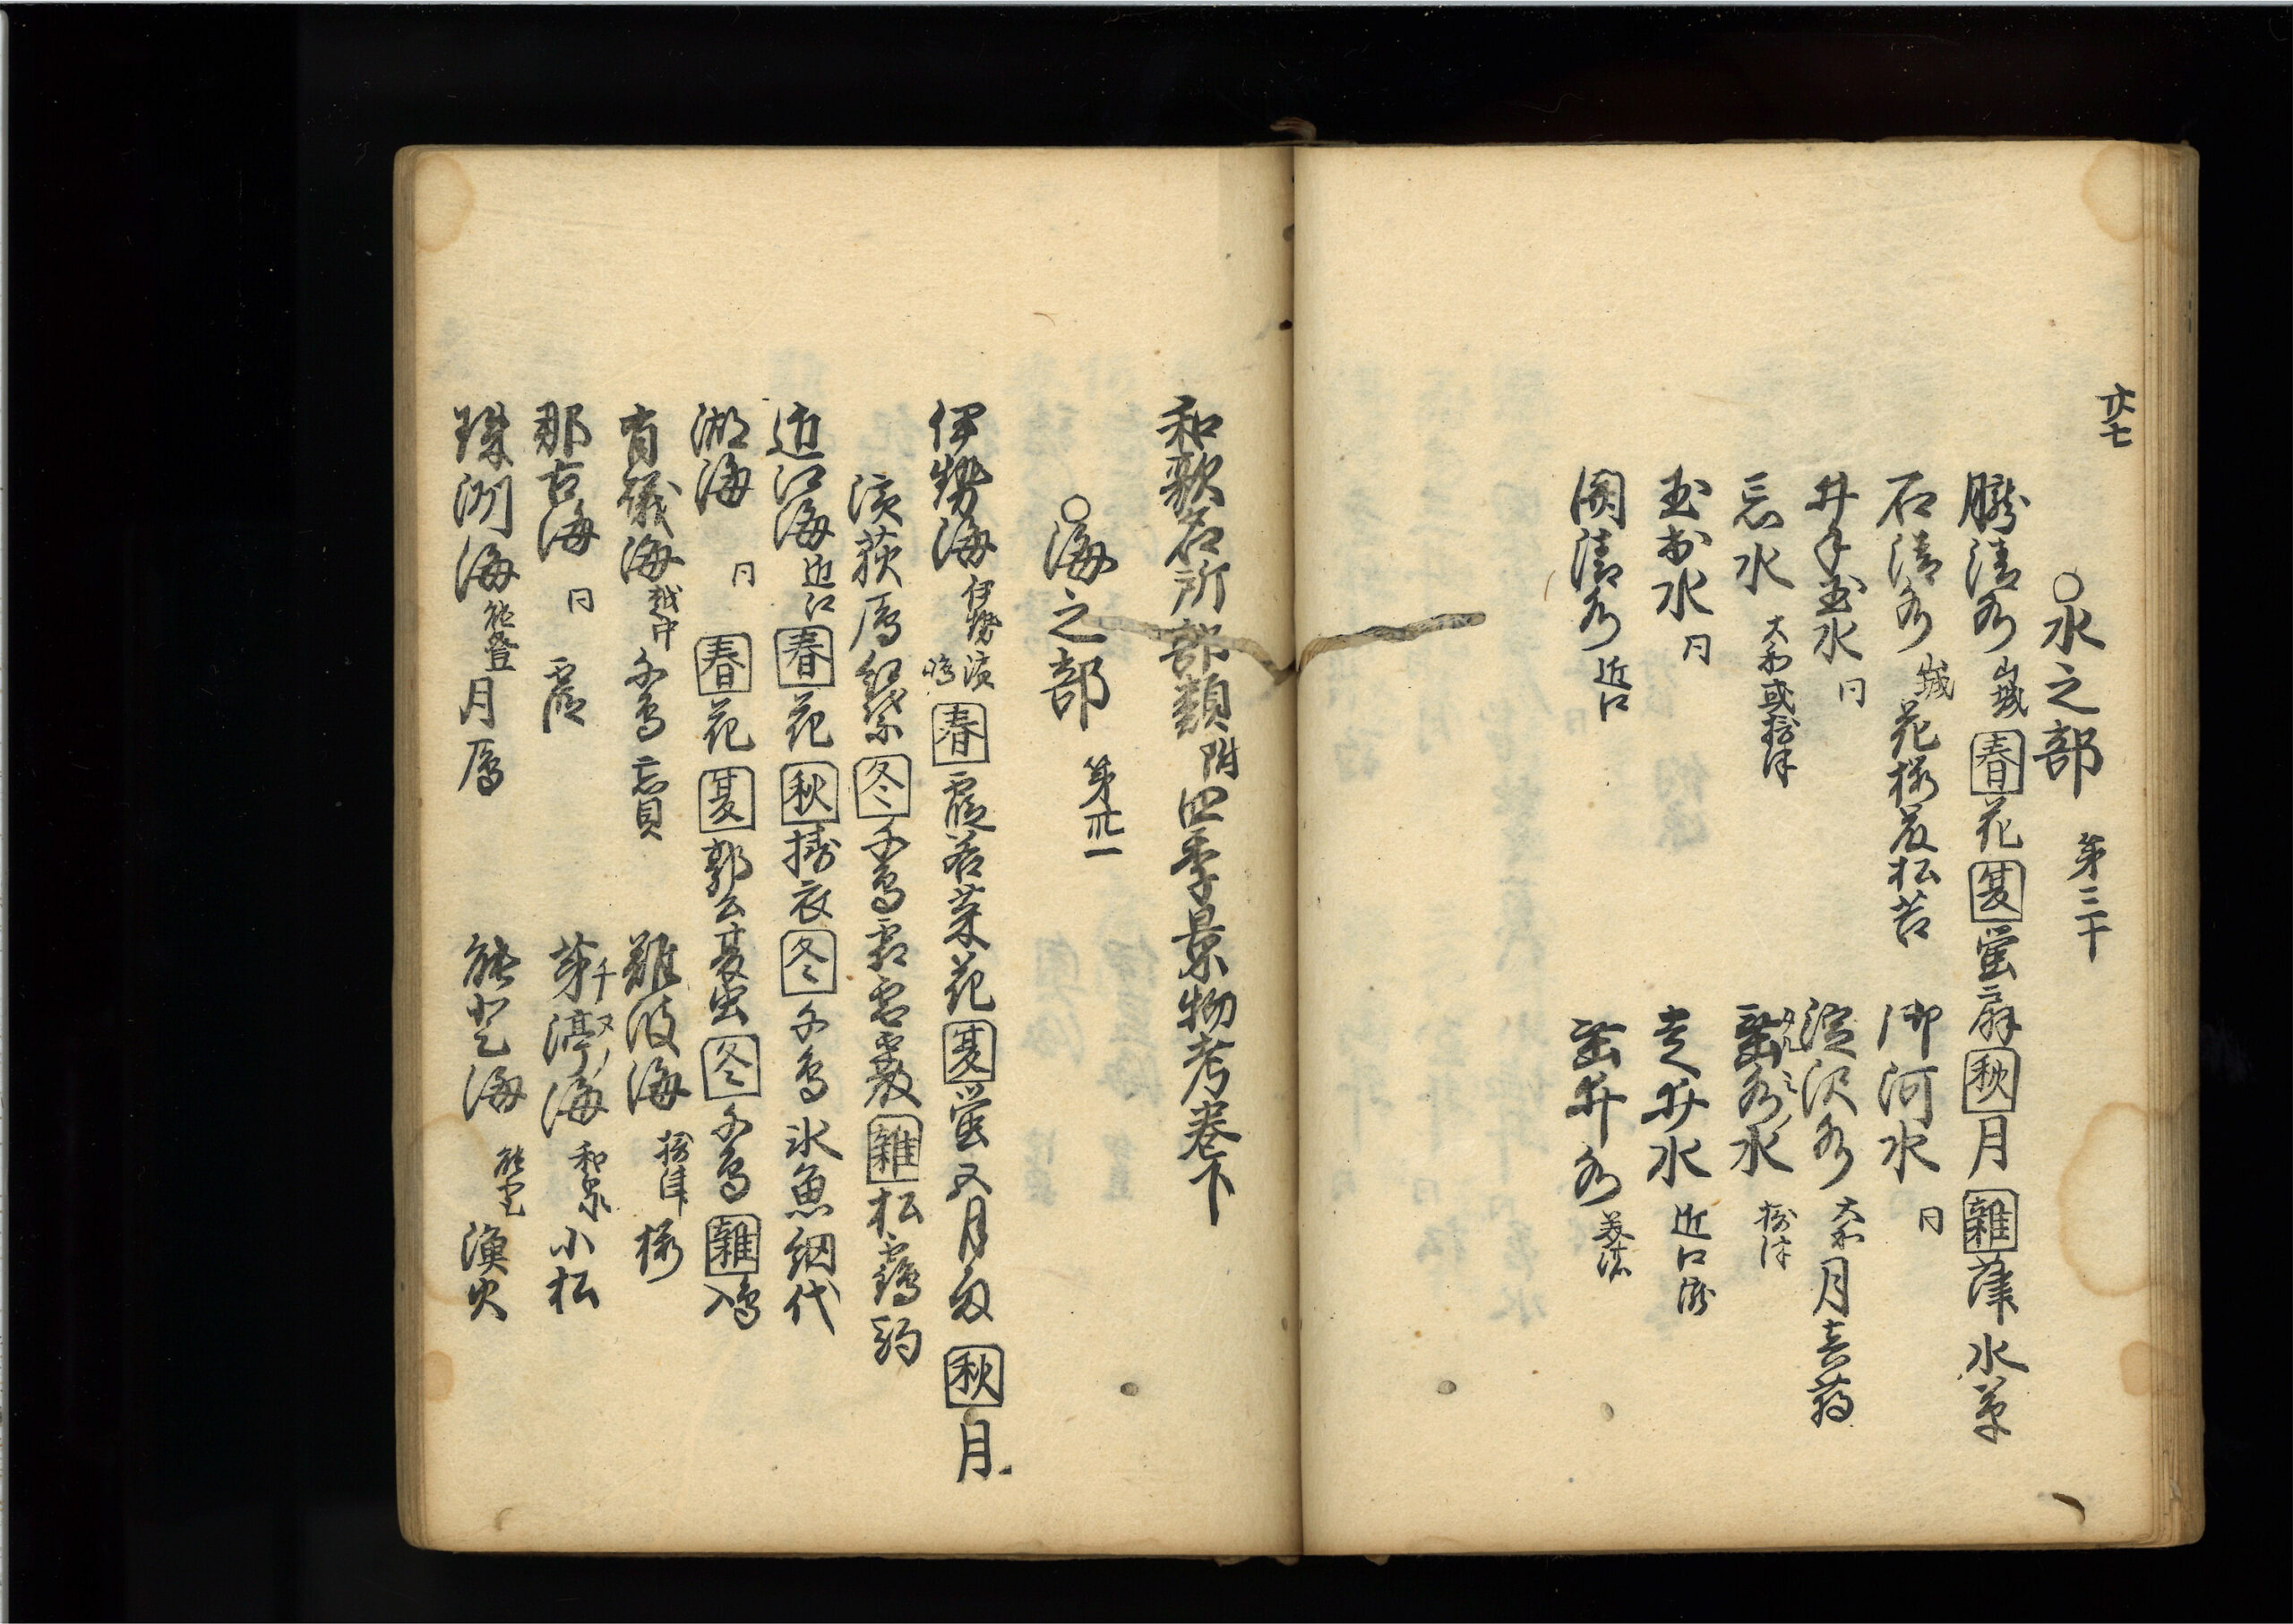 廿七
○水之部 第三十
朧清水 山城 春 花 夏 蛍 扇 秋 月 雑 葎 水草
石清水 山城 花 桜 岩 松 苔
御河水 同
井手玉水 同
淀沢水 大和 月
忘水 大和或摂津
水 摂津
玉水 同
走井水 近江
関清水 近江
井水 美濃
和歌名所部類附四季景物考巻下
○海之部 第卅一
伊勢海 伊勢 春 霞 若菜 花 夏 蛍 五月雨 秋 月
浜荻 雁 冬 千鳥 霜 雪 霰 雑 松 鶴
近江海 近江 春 花 秋 擣衣 冬 千鳥 氷魚 網代
湖海 同 春 花 夏 郭公 夏虫 冬 千鳥 雑
有礒海 越中 千鳥 忘貝
難波海 摂津 桜
那古海 同 霞
茅渟海 和泉 小松
珠洲海 能登 月 雁
能登海 能登 漁火